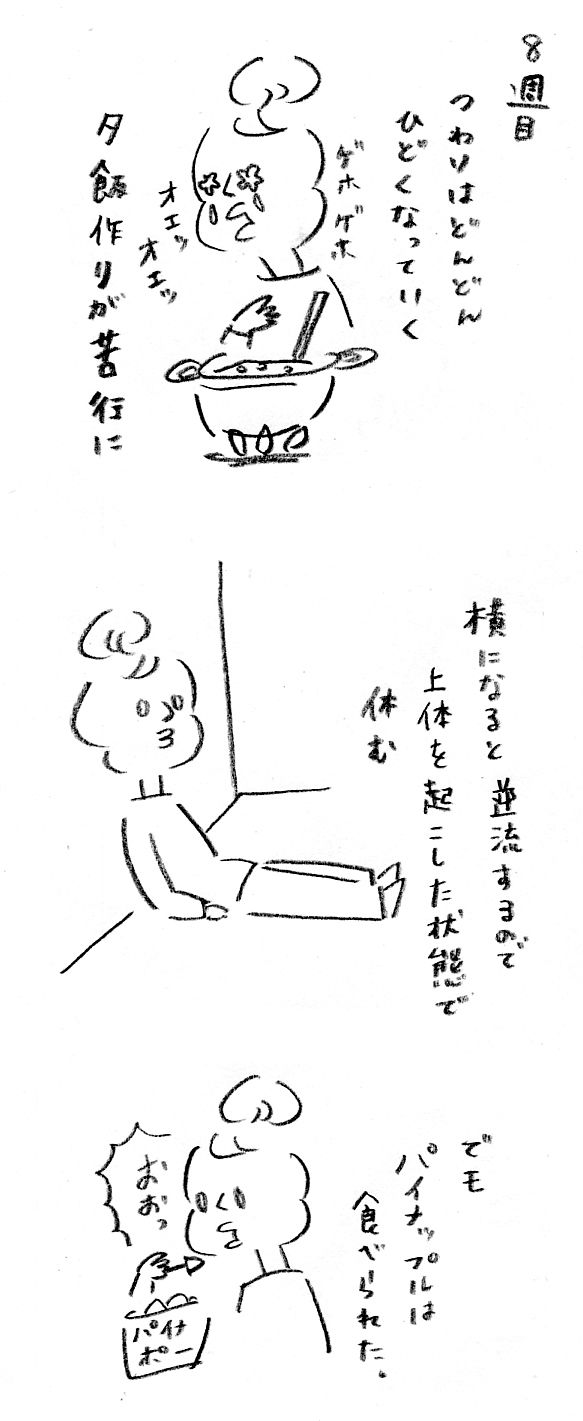 8週目
つわりはどんどん
ひどくなっていく
ゲホゲホ
オエッ
オエッ
夕飯作りが苦行に
横になると逆流するので
上体を起こした状態で
休む
でも
パイナップルは
食べられた。
おおっ
パイナ
ポー